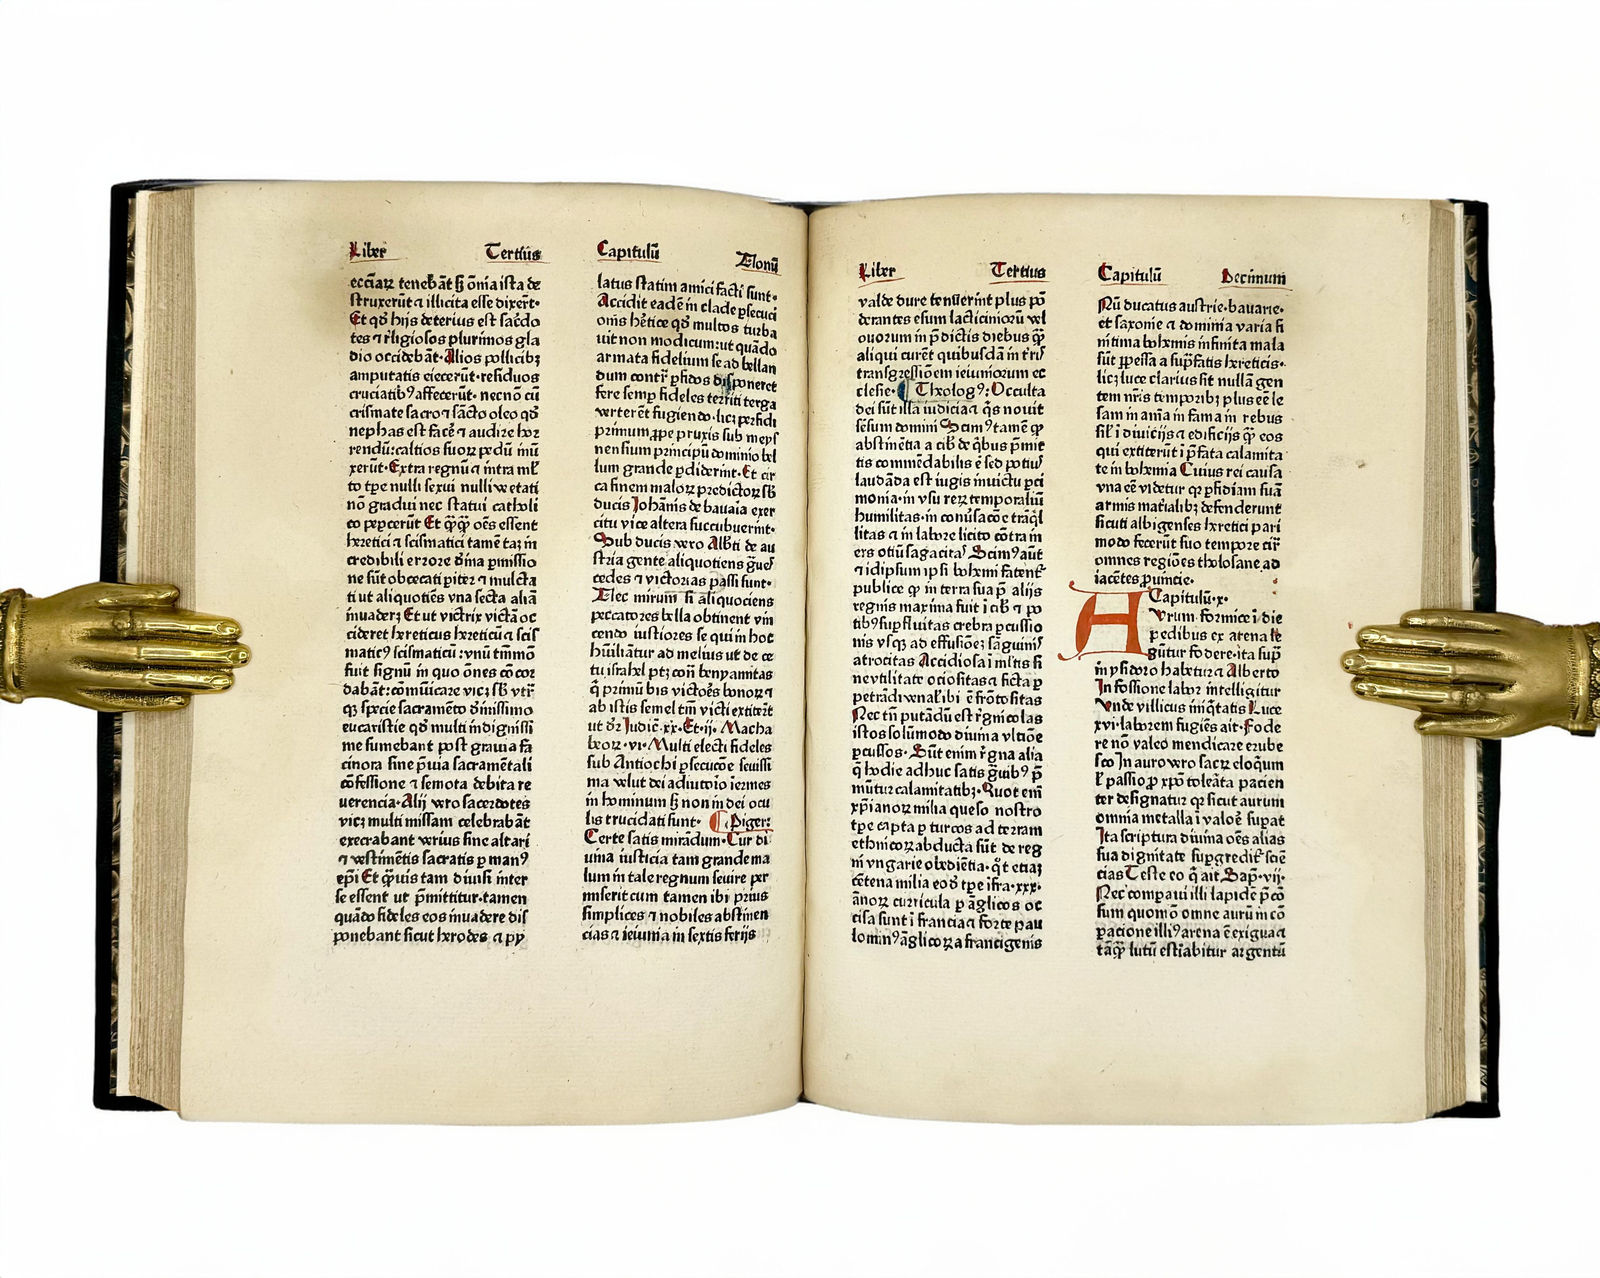 Liber Tertius
ecc̄iaꝝ teneb̄at ꝫ om̄ia ista de
struxerūt ⁊ illicita esse dixer̄t·
Et qḋ hijs deterius est sac̄do
tes ⁊ r̄ligiosos plurimos gla
dio occideb̄at· Alios pollicibꝫ
amputatis eiecer̄ūt· residuos
cruciatibꝰ affecer̄ūt· necnō cū
crismate sacro ⁊ sācto oleo qḋ
nephas est fac̄e ⁊ audire hor
rendū: caltios suoꝝ pedū inū
xer̄ūt· Extra regnū ⁊ intra ml̄
to tꝑe nulli sexui nulli ve etati
nō gradui nec statui catholi
co peꝑcer̄ūt Et qͣꝫqͣꝫ oēs essent
heretici ⁊ scismatici tamē taꝫ in
credibili errore diīna ꝑmissio
ne sūt obcecati ꝑiter ⁊ mulcta
ti ut aliquotiēs vna secta aliā
inuaderꝫ Et ut victrix victā oc
cideret hereticus hereticū ⁊ scis
maticꝰ scismaticū: vnū tm̄mō
fuit signū in quo ōnes cōcor
dabāt: cōmūicare vicꝫ sb̄ vtr̄
qꝫ specie sacramēto diīnissimo
eucaristie qḋ multi indignissi
me sumebant post grauia fa
cinora sine p̄uia sacramētali
cōfessione ⁊ semota debita re
uerencia· Alij vero sacerdotes
vicꝫ multi missam celebrabāt
execrabant verius sine altari
⁊ vestimētis sacratis ꝑ manꝰ
ep̄i Et qͣꝫuis tam diuisi inter
se essent ut p̄mittitur· tamen
quādo fideles eos inuadere dis
ponebant sicut herodes ⁊ py
Capitulū Nonū
latus statim amici facti sunt·
Accidit eadē in clade ꝑsecuci
onis hētice qḋ multos turba
uit non modicum: ut quādo
armata fidelium se ad bellan
dum contr̄ ꝑfidos disponeret
fere semꝑ fideles territi terga
verterēt fugiendo· licꝫ perfidi
primum ꝓpe pruxis sub meys
nensium principū dominio bel
lum grande ꝑdiderint· Et cir
ca finem maloꝝ predictoꝝ sb̄
ducis Johānis de bauaia exer
citu vice altera succubuerint·
Sub ducis vero Alb̄ti de au
stria gente aliquotiens gͣues
cedes ⁊ victorias passi sunt·
Nec mirum si aliquociens
peccatores bella obtinent vin
cendo iustiores se qui in hoc
hūiliātur ad melius ut de ce
tu israhel ptꝫ con̄ benyamitas
q̄ primū bis victōes bonoꝝ ⁊
ab istis semel tm̄ victi extiter̄t
ut dr̄ Judic̄·xx· Et·ij· Macha
beoꝝ·vi· Multi electi fideles
sub Antiochi ꝑsecucōe seuissi
ma velut dei adiutoīo iermes
in hominum ꝫ non in dei ocu
lis trucidati sunt· Piger:
Certe satis mirādum· Cur di
uina iusticia tam grande ma
lum in tale regnum seuire per
miserit cum tamen ibi prius
simplices ⁊ nobiles abstinen
cias ⁊ ieiunia in sextis ferijs
Liber Tertius
valde dure tenuerint plus pō
derantes esum lacticinioꝝ vel
ouorum in p̄dictis diebus qͣꝫ
aliqui curēt quibusdā in t̄ris
transgressiōem ieiuniorum ec
clesie· Theologꝰ: Occulta
dei sūt illa iudicia ⁊ q̄s nouit
sēsum domini Scimꝰ tamē ꝙ
abstinētia a cib̄ de qͥbus p̄mit
tis commēdabilis ē sed potius
laudāda est iugis inuictu ꝑci
monia· in vsu reꝝ temporaliū
humilitas· in conūsacōe trāqͥl
litas ⁊ in labore licito cōtra in
ers otiū sagacitas Scimꝰ aūt
⁊ idipsum ipsi bohemi fatent̄
publice ꝙ in terra sua p̄ alijs
regnis maxima fuit i cib̄ ⁊ po
tibꝰ suꝑfluitas crebra ꝑcussio
nis vsqꝫ ad effusiōeꝫ sāguinis
atrocitas Accidiosa i ml̄tis si
ne vtilitate ociositas ⁊ ficta ꝑ
petrādi venal̄ibi ē frōtositas
Nec tn̄ putādū est r̄gnicolas
istos solūmodo diuina vltiōe
ꝑcussos· Sūt enim r̄gna alia
q̄ hodie adhuc satis gͣuibꝰ p̄
mūtur calamitatibꝫ· Quot enī
xp̄ianoꝝ milia queso nostro
tꝑe capta ꝑ turcos ad terram
ethnicoꝝ abducta sūt de reg
ni vngarie obediētia· qͦt etiaꝫ
cētena milia eod̄ tꝑe īfra·xxx·
ānoꝝ curricula ꝑ āglicos oc
cisa sunt ī francia ⁊ forte pau
lo minꝰ āglicoꝝ a francigenis
Capitulū Decimum
Nū ducatus austrie· bauarie·
et saxonie ⁊ dominia varia fi
nitima bohemis infinita mala
sūt ꝑpessa a sup̄fatis hereticis·
licꝫ luce clarius sit nullā gen
tem nr̄is temporibꝫ plus eē le
sam in aīa in fama in rebus
sil̄ ī diuicijs ⁊ edificijs qͣꝫ eos
qui extiterūt ī p̄fata calamita
te in bohemia Cuius rei causa
vna eē videtur qꝛ ꝑfidiam suā
armis matialibꝫ defenderunt
sicuti albigenses heretici pari
modo fecerūt suo tempore cir̄
omnes regiōes tholosane ad
iacētes ꝓuincie·
Capitulū·x·
Avrum formice ī die
pedibus ex arena le
gūtur fodere· ita suꝑ
in ysidoro habetur ⁊ Alberto
In fossione labor intelligitur
Vnde villicus iniqͥtatis Luce
xvi· laborem fugiēs ait· Fode
re nō valeo mendicare erube
sco In auro vero sacꝝ eloqͥum
l̄ passio ꝓ xpō tolerāta pacien
ter designatur qꝫ sicut aurum
omnia metalla ī valoē suꝑat
Ita scriptura diuina oēs alias
sua dignitate suꝑgredit̄ sciē
cias Teste eo q̄ ait Sap̄·vij·
Nec compaui illi lapidē p̄cō
sum quoniō omne aurū in cō
ꝑacione illiꝰ arena ē exigua ⁊
tāqͣꝫ lutū estīabitur argentū